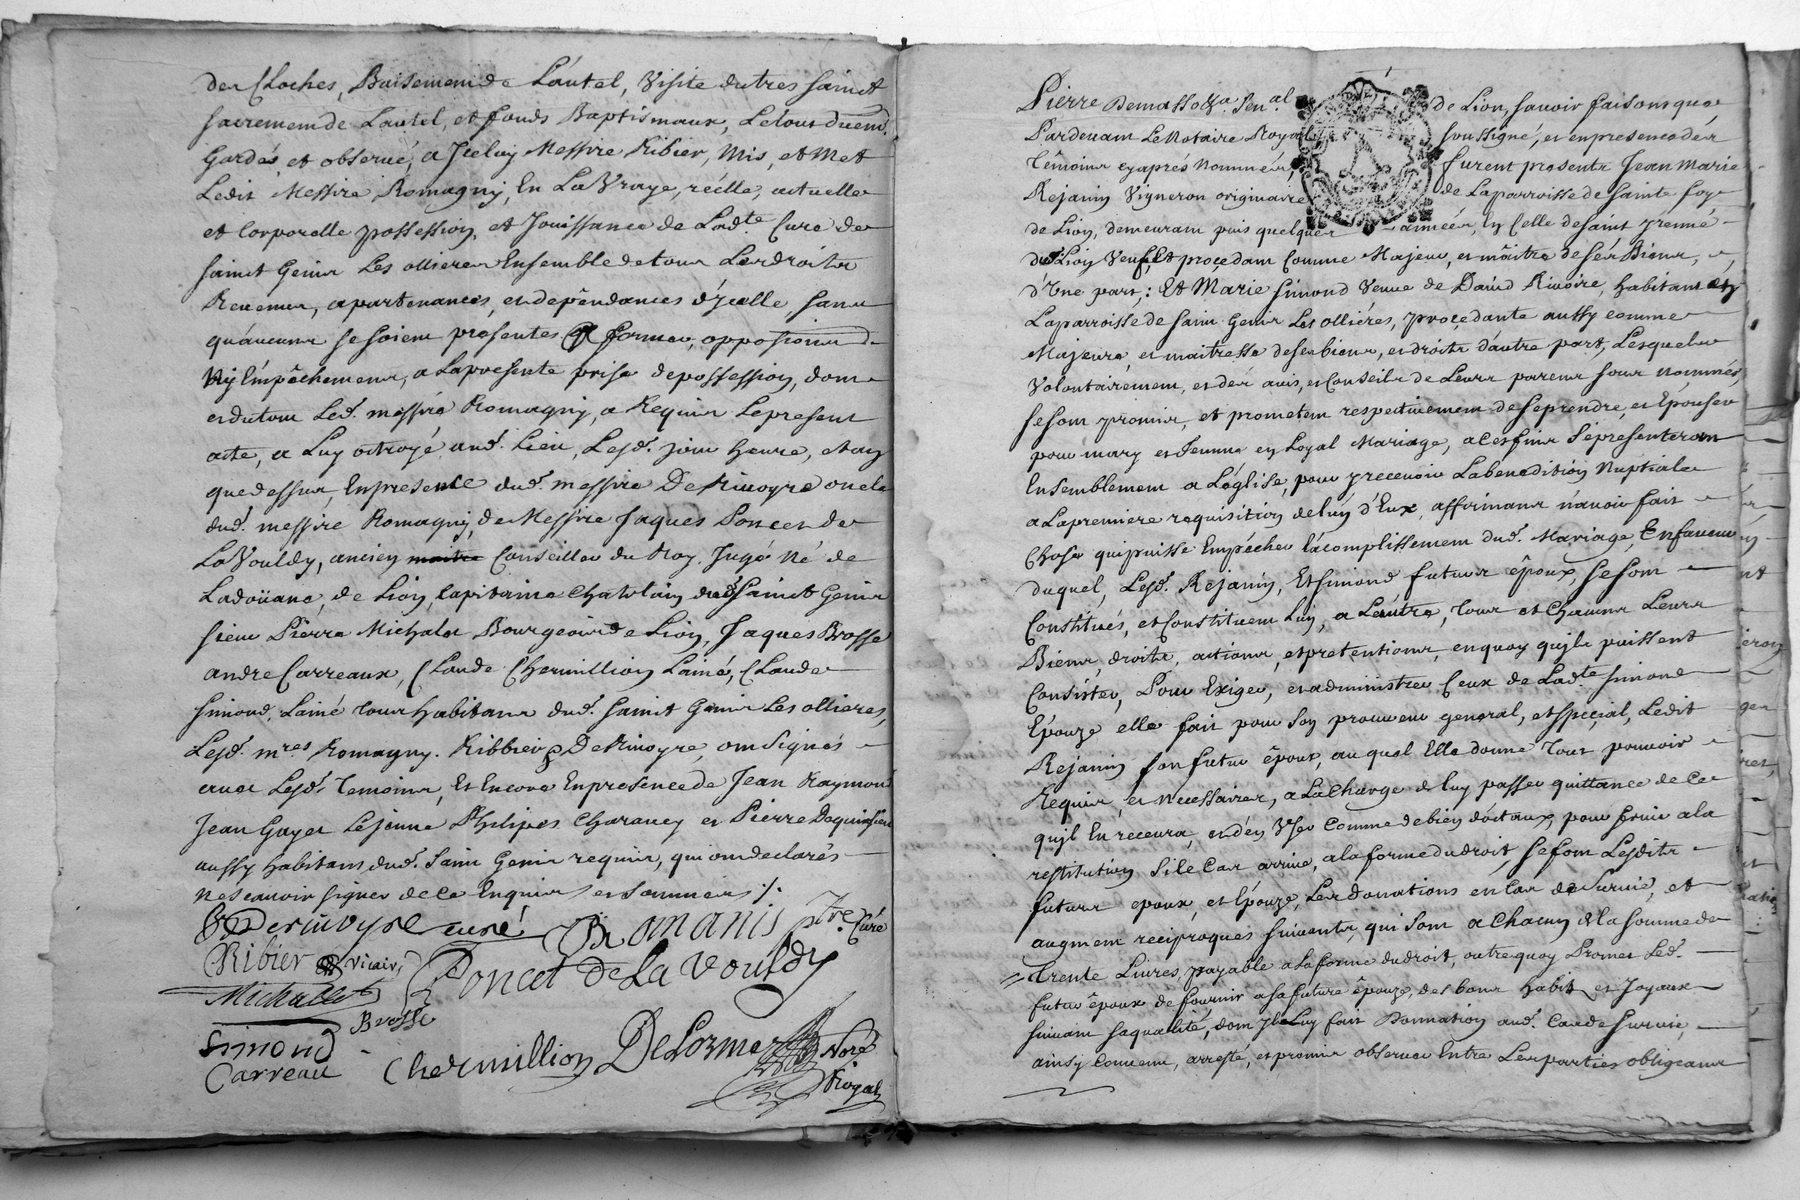 des Cloches, Baisement de L'autel, Visite du tres Saint
Sacrement de Lautel, et fonds Baptismaux, Le tout duem.t
Gardés et observé, a Iceluy Messire Ribier, Mis, et Met
Ledit Messire Romagny, En La Vraye, réelle, actuelle
et Corporelle possession, et Jouissance de Lad.te Cure de
saint Genis Les ollieres Ensemble de tous Les droits
Revenus, apartenances, et dependances d'Jcelle, sans
qu'aucuns se soient presentes former oppositions
Ny Empêchemens, a La presente prise de possession, dont
et du tout Led. messire Romagny, a Requis Le present
acte, a Luy octroyé aud. Lieu, Lesd. jour heure, et an
que dessus, En presence dud. messire De Rivoyre oncle
dud. messire Romagny, de Messire Jaques Poncet de
LaVouldy, ancien maitre Conseiller du Roy, Jugé Né de
Ladoüane, de Lion, Capitaine Chatelain dud Saint Genis
sieur Pierre Michalet Bourgeois de Lion, Jaques Brosse
andre Carreaux, Claude Chermillion Lainé, Claude
Simond, Lainé tous habitans dud. Saint Genis Les ollieres,
Lesd. m.res Romagny. Ribbier, De Rivoyre, ont Signés
avec Lesd. temoins, Et Encore En presence de Jean Raymond
Jean Gayet Le jeune Philipes Charavey et Pierre Dequinsieu
aussy habitans dud. Saint Genis requis, qui ont declarés
Ne scavoir signer de ce Enquis et sommés ./.
Derivoyre curé Romanis p.tre Curé
Ribier vicair
Poncet De La Vouldy
Michallet
Brosse
Simond
Carreau
Chermillion DeLorme
No.re
Royal
Pierre Demasso Sen.al de Lion, savoir faisons que
Pardevant Le Notaire Royal soussigné, et en presence des
Témoins cy après Nommés, furent presents Jean Marie
Rejanin Vigneron originaire de La parroisse de Sainte foy
de Lion, demeurant puis quelques années, En Celle de Saint yrenné
de Lion Veuf, et proçedant Comme Majeur, et mâitre de sés Biens,
d'Vne part, : Et Marie Simond Veuve de David Rivoire, habitant en
La parroisse de saint Genis Les ollières, proçedante aussy comme
Majeure, et maitresse de ses biens, et droits d'autre part, Lesquels
Volontairement, et dés avis, et Conseils de Leurs parens sous nommés,
se sont promis, et prometent respectivement de se prendre, et Epouser
pour mary et femme en Loyal Mariage, a Cés fins Sépresenteront
Ensemblement a L'église, pour y recevoir La benedition Nuptiale
a La premiere requisition de l'un d'Eux, affirmans n'avoir fait
Chose qui puisse Empécher l'acomplissement dud. Mariage, En faveur
duquel, Lesd. Rejanin, Et Simond futurs époux, se sont
Constitués, et Constituent L'un, a Lautre, tous et Chacuns Leurs
Biens, droits, actions, et pretentions, en quoy qu'ils puissent
Consister, Pour Exiger, et administrer Ceux de Lad.te Simond
Epouze elle fait pour Son procureur general, et spécial, Ledit
Rejanin son futur époux, auquel Elle donne tout pouvoir
Requis, et Necessaires, a La Charge de luy passer quittance de Ce
qu'jl En recevra, et d'en Vser Comme de bien dôtaux, pour servir a la
restitution Si le Cas arrive, a la forme du droit, se font Lesdits
futurs epoux, et Epouze, Les donations en Cas de Survie, et
augment reciproques suivants, qui Sont a Chacun de la Somme de
trente Livres, payable a La forme du droit, outre quoy Promet Led.
futur époux de fournir a sa future épouze, des bons habits et Joyaux
suivant sa qualité, dont Jl Luy fait Donnation aud. Cas de Survie,
ainsy Convenu, arresté, et promis observer Entre Les parties obligeans